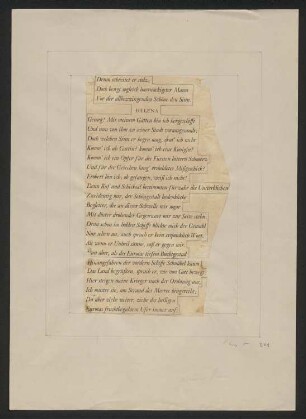 Denn
Doch beugt sogleich hartnäckigster Mann
Vor der allbezwingenden Schöne den Sinn.
HELENA
Genug! Mit meinem Gatten bin ich hergeschifft
Und nun von ihm zu seiner Stadt vorausgesandt;
Doch welchen Sinn er hegen mag, errat' ich nicht.
Komm' ich als Gattin? komm' ich eine Königin?
Komm' ich ein Opfer für des Fürsten bittern Schmerz
Und für der Griechen lang' erduldetes Mißgeschick?
Erobert bin ich; ob gefangen, weiß ich nicht!
Denn Ruf und Schicksal bestimmten fürwahr die Unsterblichen
Zweideutig mir, der Schöngestalt bedenkliche
Begleiter, die an dieser Schwelle mir sogar
Mit düster drohender Gegenwart zur Seite stehn.
Denn schon im hohlen Schiffe blickte mich der Gemahl
Nur selten an, auch sprach er kein erquicklich Wort.
Als wenn er Unheil sänne, saß er gegen mir.
Nun aber, als des Eurotas tiefem Buchtgestad
Hinangefahren der vordern Schiffe Schnäbel kaum
Das Land begrüßten, sprach er, wie vom Gott bewegt:
Hier steigen meine Krieger nach der Ordnung aus,
Ich mustre sie, am Strand des Meeres hingereiht;
Du aber ziehe weiter, ziehe des heiligen
Eurotas fruchtbegabtem Ufer immer auf,